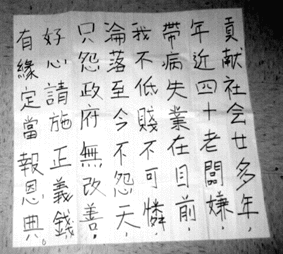 貢献社会廿多年，
年近四十老闆嫌，
帶病失業在目前，
我不低賤不可憐，
淪落至今不怨天，
只怨政府無改善，
好心請施正義錢
有緣定當報恩典。